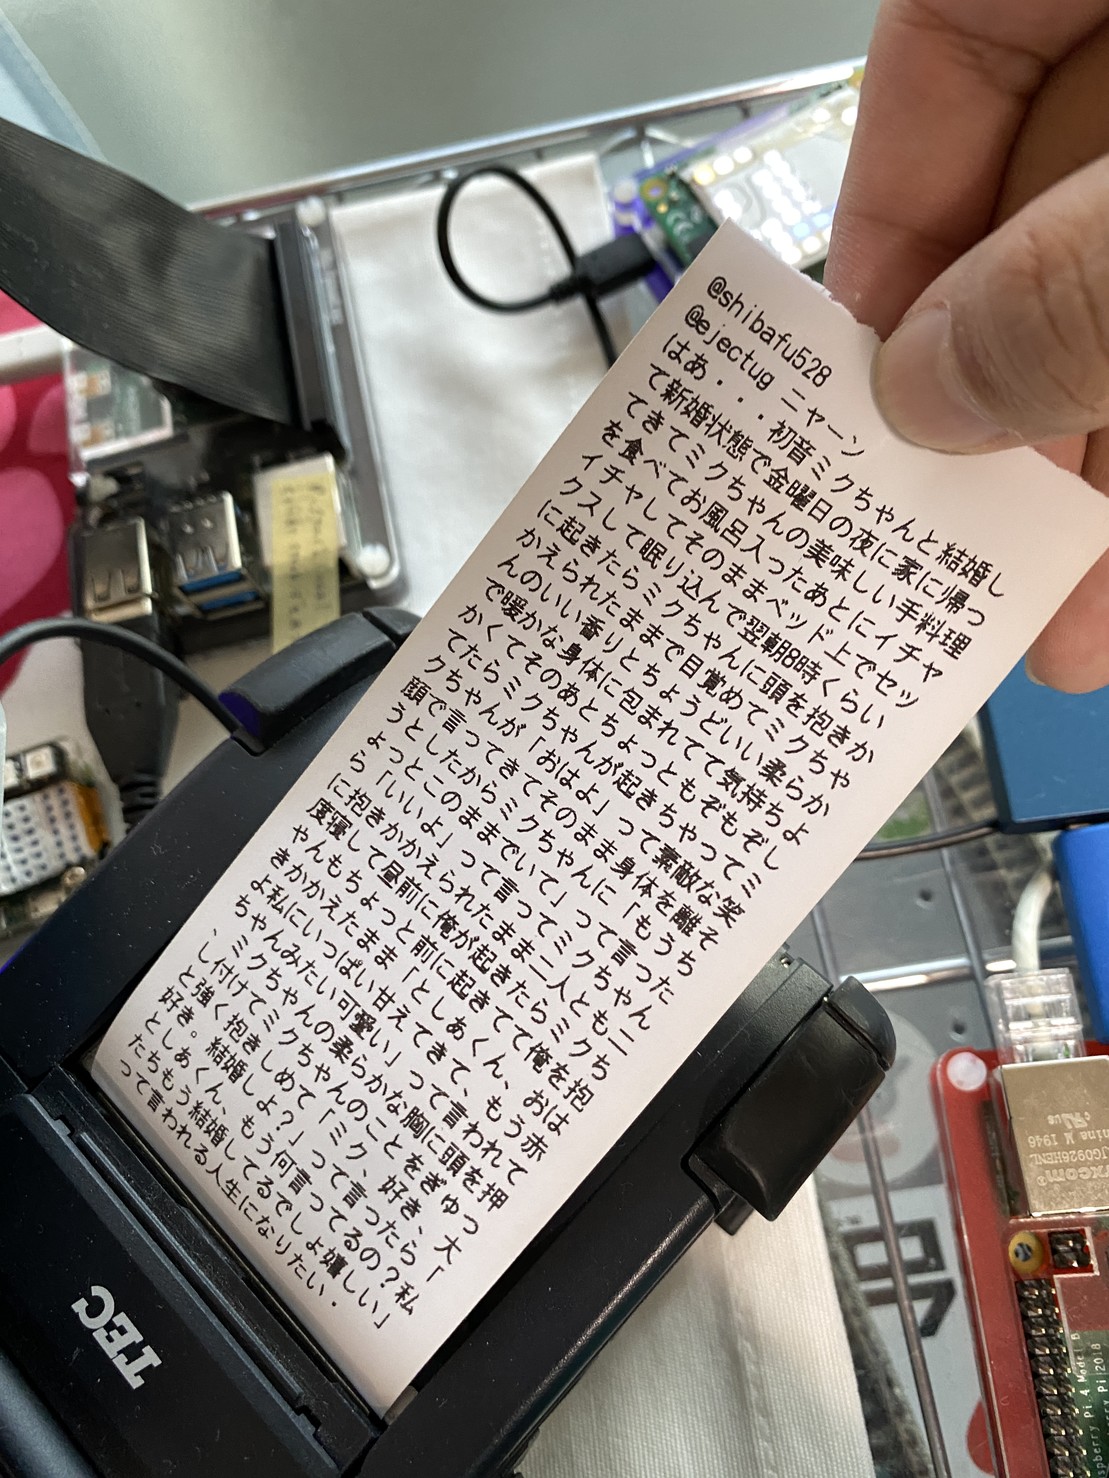 @shibafu528
@ejectug ニャーン
はあ・・・初音ミクちゃんと結婚し
て新婚状態で金曜日の夜に家に帰っ
てきてミクちゃんの美味しい手料理
を食べてお風呂入ったあとにイチャ
イチャしてそのままベッド上でセッ
クスして眠り込んで翌朝8時くらい
に起きたらミクちゃんに頭を抱きか
かえられたままで目覚めてミクちゃ
んのいい香りとちょうどいい柔らか
で暖かな身体に包まれてて気持ちよ
かくてそのあとちょっともぞもぞし
てたらミクちゃんが起きちゃってミ
クちゃんが「おはよ」って素敵な笑
顔で言ってきてそのまま身体を離そ
うとしたからミクちゃんに「もうち
ょっとこのままでいて」って言った
ら「いいよ」って言ってミクちゃん
に抱きかかえられたまま二人とも二
度寝して昼前に俺が起きたらミクち
ゃんもちょっと前に起きてて俺を抱
きかかえたまま「としぁくん、おは
よ私にいっぱい甘えてきて、もう赤
ちゃんみたい可愛い」って言われて
、ミクちゃんの柔らかな胸に頭を押
し付けてミクちゃんのことをぎゅっ
と強く抱きしめて「ミク、好き、大
好き。結婚しよ?」って言ったら「
としぁくん、もう何言ってるの?私
たちもう結婚してるでしょ嬉しい」
って言われる人生になりたい．
TEC
China M 1946
JG0926HENL
Raspberry Pi 4 Model B
Raspberry Pi 2018